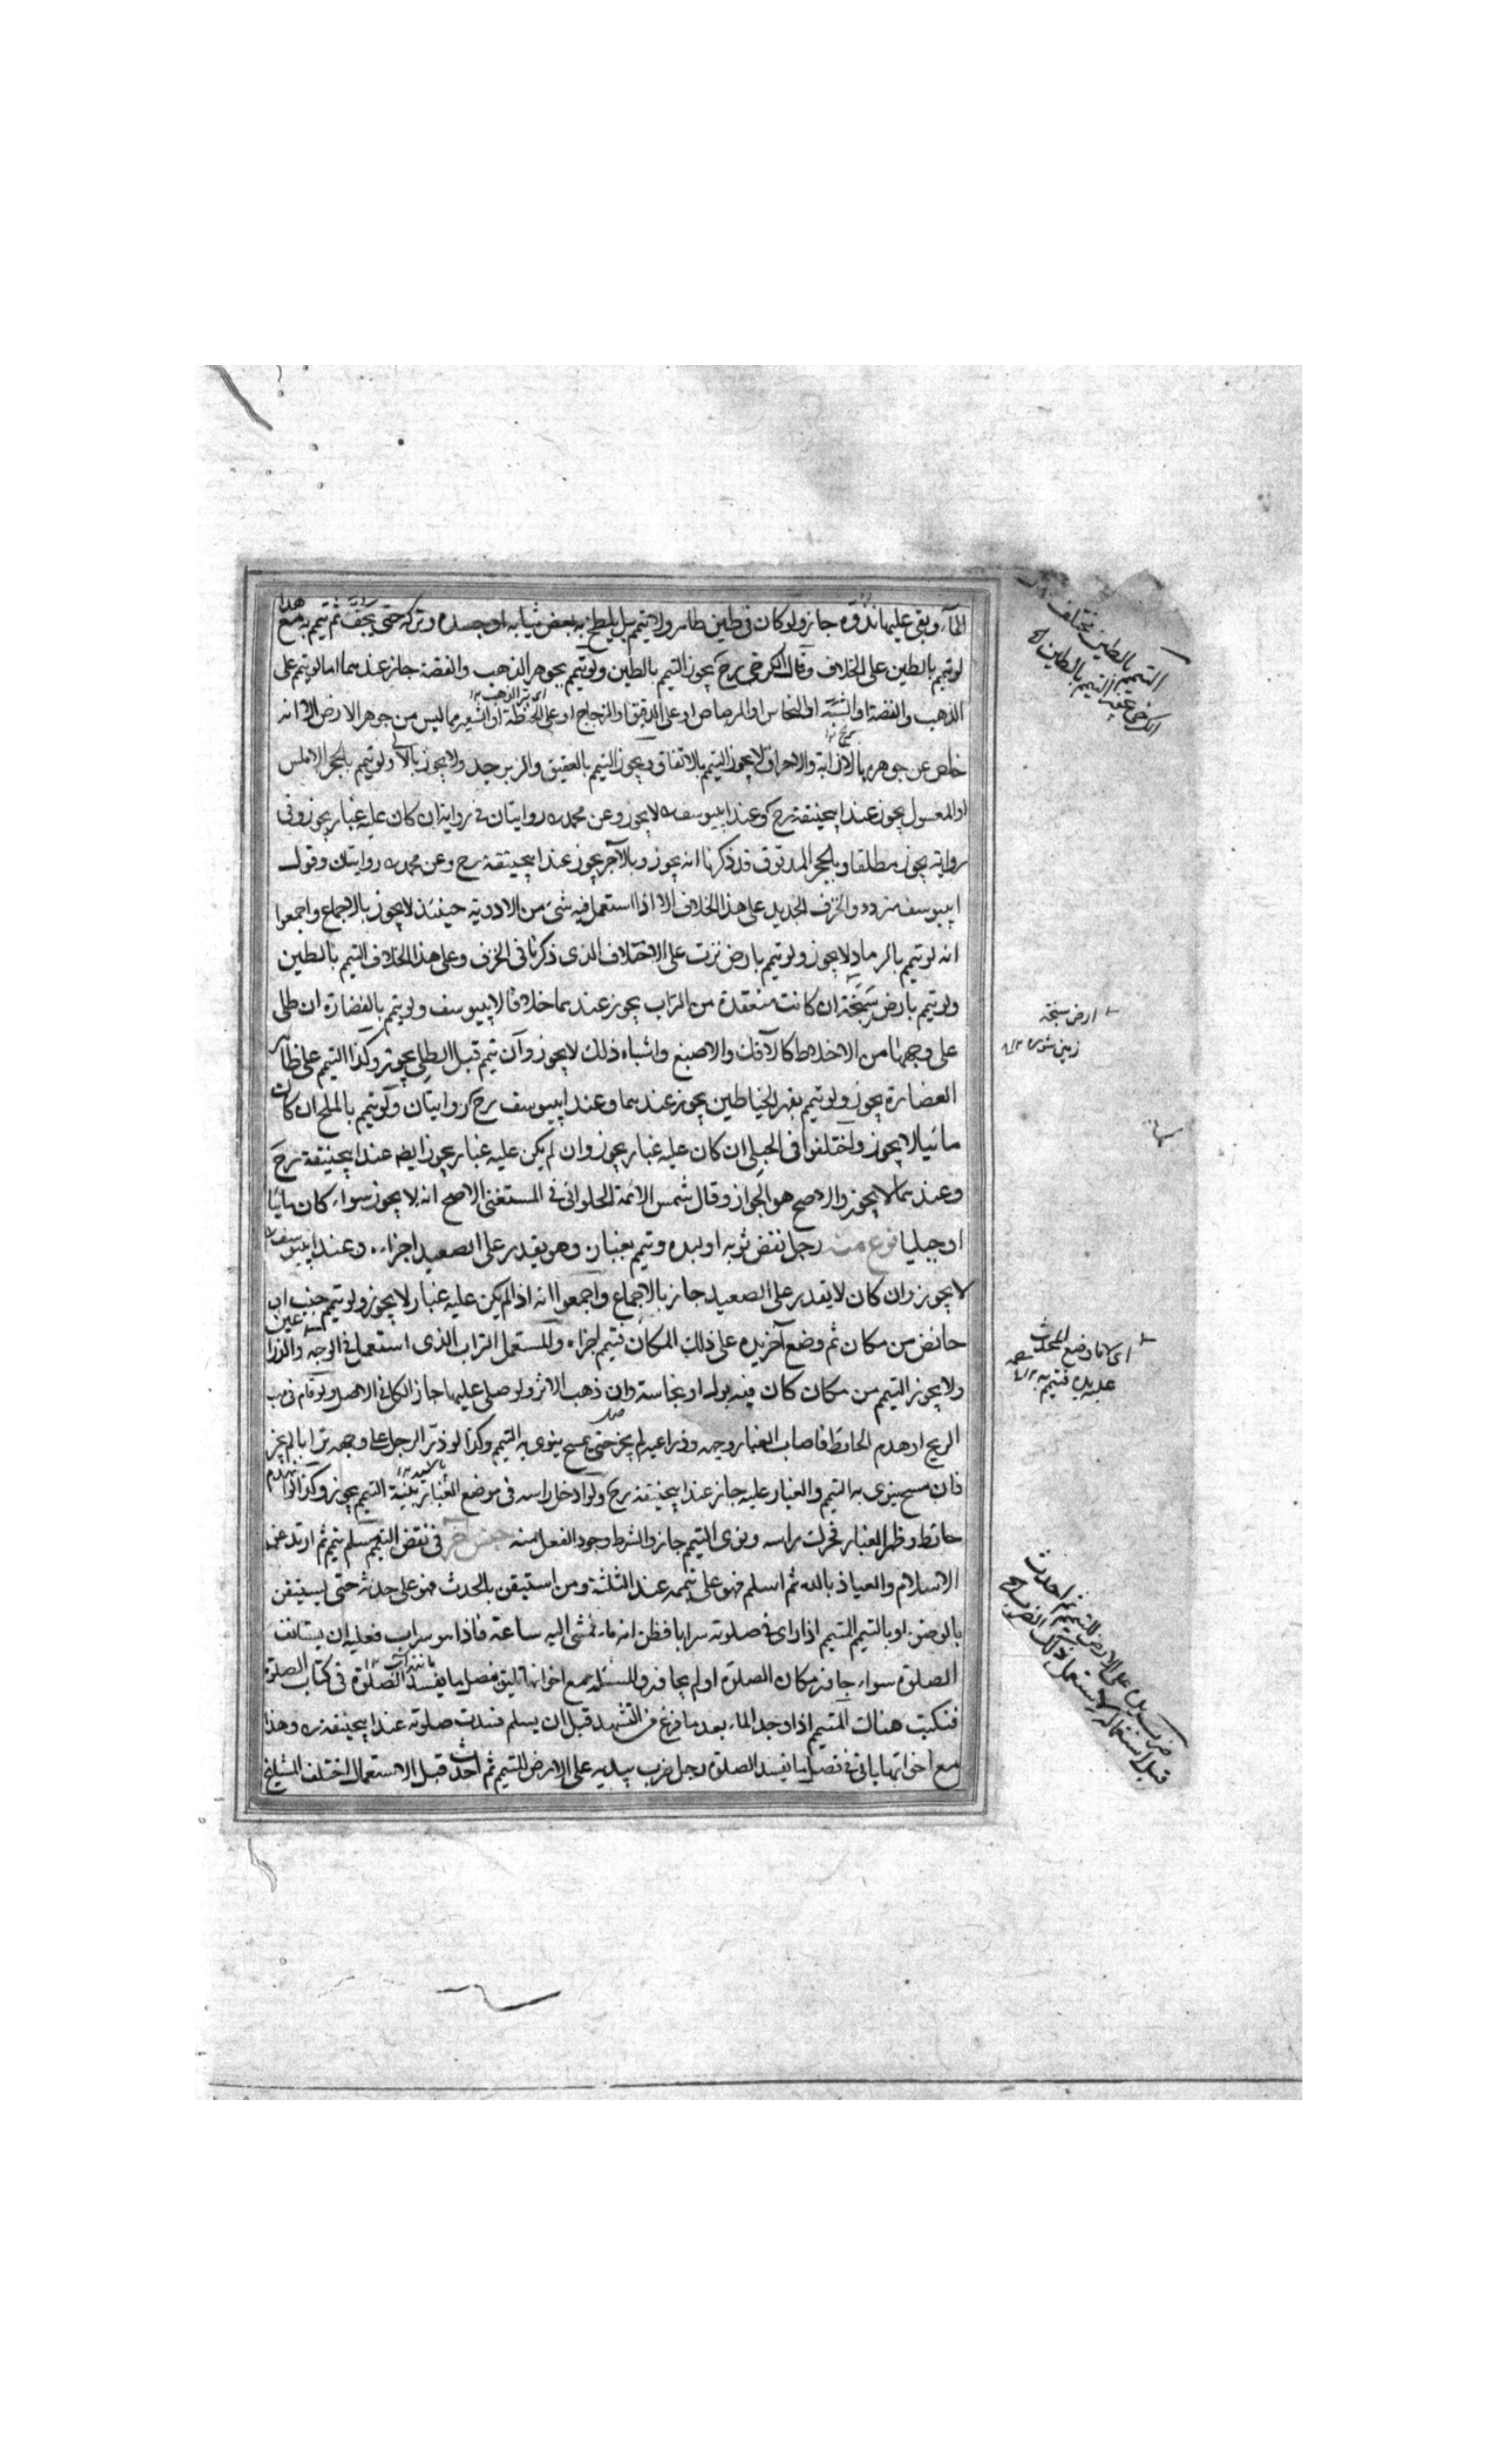 الماء وبقى عليها نذوّه جاز ولو كان فى طين طاهر ولا يتيمم بل يلطخ به بعض ثيابه او جسده وتركه حتى يجف ثم تيمم به مع هذا
لو تيمم بالطين على الخلاف وقال الكرخى رح يجوز التيمم بالطين ولو تيمم بجوهر الذهب والفضة جاز عندهما اما لو تيمم على
الذهب والفضة او الشبّه او النحاس او الرصاص او على الدقيق او الزجاج او على الحنطة او الشعير مما ليس من جوهر الارض او انه
خلص عن جوهره بالاذابة والاحراق لا يجوز التيمم بالاتفاق ويجوز التيمم بالعقيق والزبرجد ولا يجوز باللآلى ولو تيمم بالحجر الاملس
او المغسول يجوز عند ابيحنيفة رح وعند ابييوسف لا يجوز وعن محمد روايتان فى رواية ان كان عليه غبار يجوز وفى
رواية يجوز مطلقا وبالحجر المدقوق قد ذكرنا انه يجوز وبالآجر يجوز عند ابيحنيفة رح وعن محمد روايتان وقول
ابييوسف متردد والخزف الجديد على هذا الخلاف الا اذا استعمل فيه شئ من الادوية حينئذ لا يجوز بالاجماع واجمعوا
انه لو تيمم بالرماد لا يجوز ولو تيمم بارض نزت على الاختلاف الذى ذكرنا فى الخزف وعلى هذا الخلاف التيمم بالطين
ولو تيمم بارض سبخة ان كانت منعقدة من التراب يجوز عندهما خلافا لابييوسف ولو تيمم بالغضارة ان طلى
على وجهها من الاخلاط كالآنك والاصبغ واشباه ذلك لا يجوز وان تيمم قبل الطلى يجوز وكذا التيمم على ظاهر
الغضارة يجوز ولو تيمم بقهر الخياطين يجوز عندهما وعند ابييوسف رح روايتان ولو تيمم بالملح ان كان
مائيا لا يجوز واختلفوا فى الجبلى ان كان عليه غبار يجوز وان لم يكن عليه غبار يجوز ايضا عند ابيحنيفة رح
وعندهما لا يجوز والاصح هو الجواز وقال شمس الائمة الحلوانى فى المستغنى الاصح انه لا يجوز سواء كان مائيا
او جبليا نوع منه رجل نفض ثوبه او لبده وتيمم بغباره وهو يقدر على الصعيد اجزاه وعند ابييوسف
لا يجوز وان كان لا يقدر على الصعيد جاز بالاجماع واجمعوا انه اذا لم يكن عليه غبار لا يجوز ولو تيمم جنب او
حائض من مكان ثم وضع آخر يده على ذلك المكان فتيمم اجزاه والمستعمل التراب الذى استعمل فى الوجه والذراعين
ولا يجوز التيمم من مكان كان فيه بول او نجاسة وان ذهب الاثر ولو صلى عليها جاز الكل فى الاصل ولو قام فى مهب
الريح او هدم الحائط فاصاب الغبار وجهه وذراعيه لم يجز حتى يمسح ينوى به التيمم وكذا لو ذرّ الرجل على وجهه ترابا لم يجز
فان مسح ينوى به التيمم والغبار عليه جاز عند ابيحنيفة رح ولو ادخل راسه فى موضع الغبار بنية التيمم يجوز وكذا لو انهدم
حائط وظهر الغبار فحرك راسه ونوى التيمم جاز والشرط وجود الفعل منه جنس آخر فى نقض التيمم مسلم تيمم ثم ارتد عن
الاسلام والعياذ بالله ثم اسلم فهو على تيممه عند الثلثة ومن استيقن بالحدث فهو على حدثه حتى يستيقن
بالوضوء او بالتيمم المتيمم اذا راى فى صلوته سرابا فظن انه ماء فمشى اليه ساعة فاذا هو سراب فعليه ان يستانف
الصلوة سواء جاوز مكان الصلوة او لم يجاوز والمسئلة مع اخواتها تاتى فى فصل ما يفسد الصلوة فى كتاب الصلوة
فنكبت هناك المتيمم اذا وجد الماء بعد ما فرغ من التشهد قبل ان يسلم فسدت صلوته عند ابيحنيفة وهذا
مع اخواتها ياتى فى فصل ما يفسد الصلوة رجل ضرب بيديه على الارض للتيمم ثم احدث قبل الاستعمال اختلف المشايخ
التيمم بالطين مختلف
الكرخى التيمم بالطين
ارض سبخة
زمين شوره
اى كما وضع المحدث
عليه يده فتيمم به
ضرب يديه على الارض للتيمم ثم احدث
قبل استعماله لا يستعمل ذلك الضرب